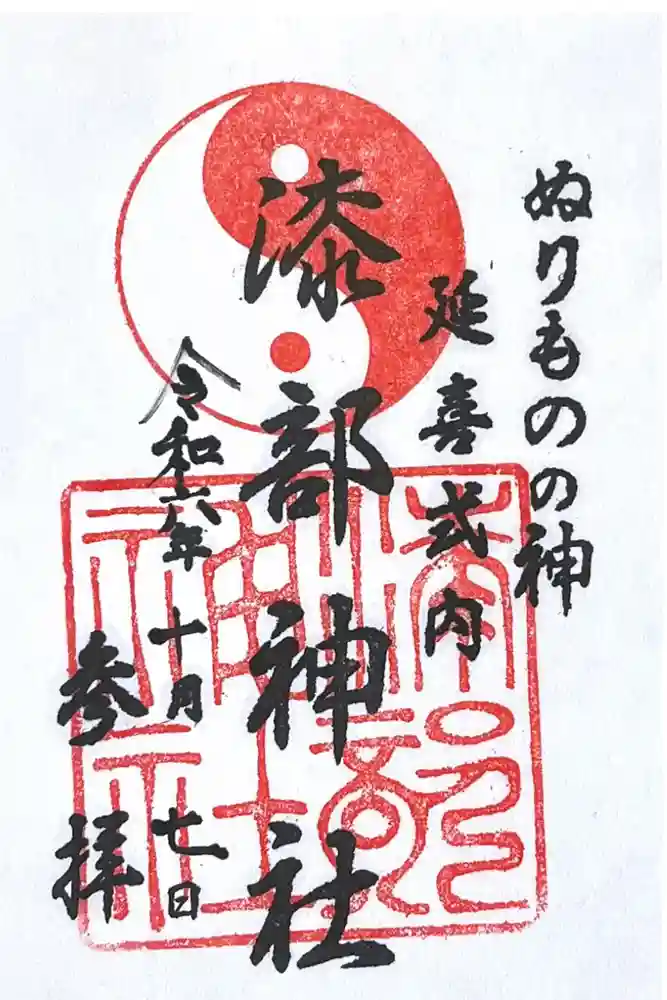 ぬりものの神
延喜式内
漆部神社
令和六年十月七日
参拝
漆部
神社